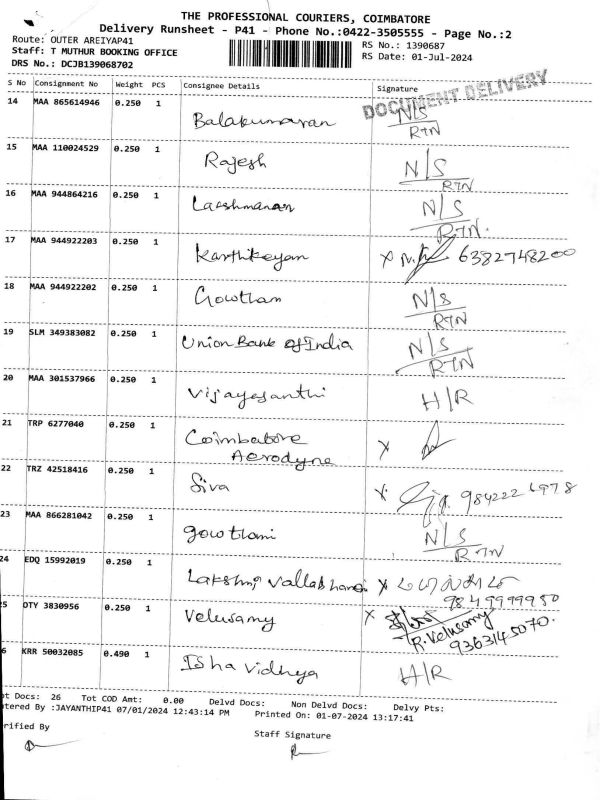 THE PROFESSIONAL COURIERS, COIMBATORE
Delivery Runsheet - P41 - Phone No.:0422-3505555 - Page No.:2
Route: OUTER AREIYAP41
RS No.: 1390687
Staff: T MUTHUR BOOKING OFFICE
RS Date: 01-Jul-2024
DRS No.: DCJB139068702
S No Consignment No Weight PCS Consignee Details Signature
DOCUMENT DELIVERY
14 MAA 865614946 0.250 1 Balakumaran N/S
RTN
15 MAA 110024529 0.250 1 Rajesh N/S
RTN
16 MAA 944864216 0.250 1 Lakshmanan N/S
RTN.
17 MAA 944922203 0.250 1 Karthikeyan X 6382748200
18 MAA 944922202 0.250 1 Gowtham N/S
RTN
19 SLM 349383082 0.250 1 Union Bank of India N/S
RTN
20 MAA 301537966 0.250 1 Vijayasanthi H/R
21 TRP 6277040 0.250 1 Coimbatore X
Aerodyne
22 TRZ 42518416 0.250 1 Siva X
23 MAA 866281042 0.250 1 Gowthami N/S
RTN
24 EDQ 15992019 0.250 1 Lakshmi Vallabhan X
9849999950
25 OTY 3830956 0.250 1 Veluswamy X
R. Velusamy
9363145070.
6 KRR 50032085 0.490 1 Isha Vidhya H/R
ot Docs: 26 Tot COD Amt: 0.00 Delvd Docs: Non Delvd Docs: Delvy Pts:
ntered By :JAYANTHIP41 07/01/2024 12:43:14 PM Printed On: 01-07-2024 13:17:41
rified By
Staff Signature